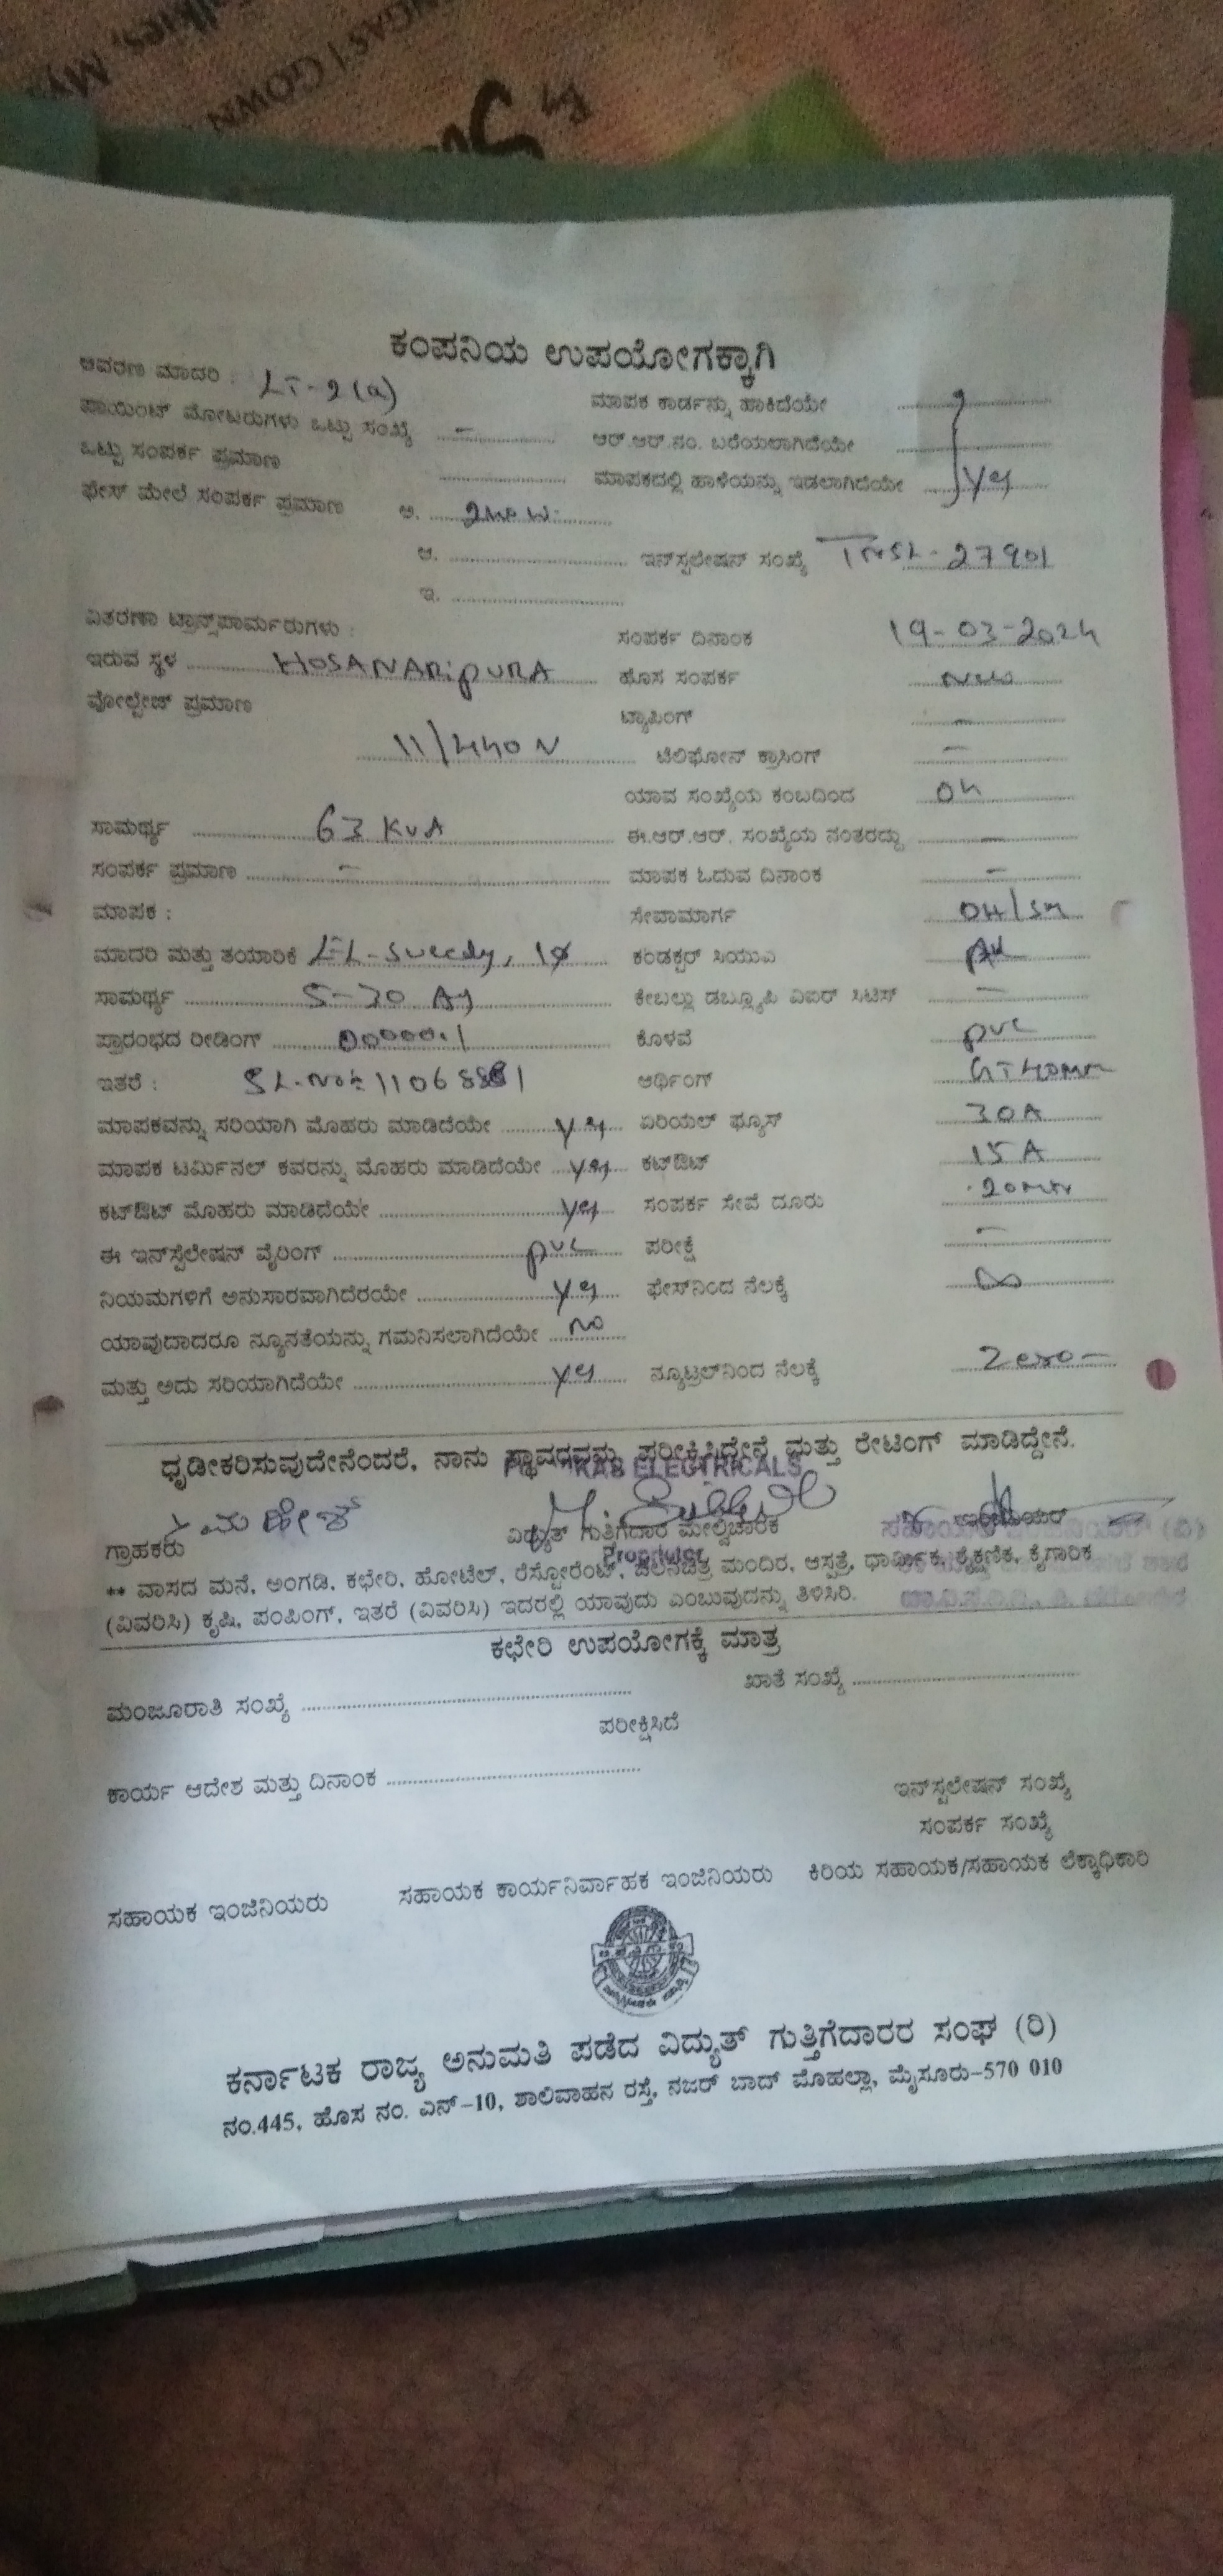 ಕಂಪನಿಯ ಉಪಯೋಗಕ್ಕಾಗಿ
ಆವರಣ ಮಾದರಿ : LT-2(a)
ಪಾಯಿಂಟ್ ಮೋಟರುಗಳು ಒಟ್ಟು ಸಂಖ್ಯೆ - ಮಾಪಕ ಕಾರ್ಡನ್ನು ಹಾಕಿದೆಯೇ
ಒಟ್ಟು ಸಂಪರ್ಕ ಪ್ರಮಾಣ ಆರ್.ಆರ್.ನಂ. ಬರೆಯಲಾಗಿದೆಯೇ
ಫೇಸ್ ಮೇಲೆ ಸಂಪರ್ಕ ಪ್ರಮಾಣ ಮಾಪಕದಲ್ಲಿ ಹಾಳೆಯನ್ನು ಇಡಲಾಗಿದೆಯೇ Yes
ಅ.
ಆ. ಇನ್‌ಸ್ಟಲೇಷನ್ ಸಂಖ್ಯೆ 27901
ಇ.
ವಿತರಣಾ ಟ್ರಾನ್ಸ್‌ಪಾರ್ಮರುಗಳು : ಸಂಪರ್ಕ ದಿನಾಂಕ 19-03-2024
ಇರುವ ಸ್ಥಳ HOSANARipURA ಹೊಸ ಸಂಪರ್ಕ New
ವೋಲ್ಟೇಜ್ ಪ್ರಮಾಣ ಟ್ಯಾಪಿಂಗ್ -
11/440 V ಟೆಲಿಫೋನ್ ಕ್ರಾಸಿಂಗ್ -
ಯಾವ ಸಂಖ್ಯೆಯ ಕಂಬದಿಂದ
ಸಾಮರ್ಥ್ಯ 63 KVA ಈ.ಆರ್.ಆರ್. ಸಂಖ್ಯೆಯ ನಂತರದ್ದು -
ಸಂಪರ್ಕ ಪ್ರಮಾಣ - ಮಾಪಕ ಓದುವ ದಿನಾಂಕ -
ಮಾಪಕ : ಸೇವಾಮಾರ್ಗ OH/SM
ಮಾದರಿ ಮತ್ತು ತಯಾರಿಕೆ 1φ ಕಂಡಕ್ಟರ್ ಸಿಯುಎ
ಸಾಮರ್ಥ್ಯ 5-30 A ಕೇಬಲ್ಲು ಡಬ್ಲ್ಯೂಪಿ ಎಐಆರ್ ಸಿಟಿಸ್ -
ಪ್ರಾರಂಭದ ರೀಡಿಂಗ್ 00000.1 ಕೊಳವೆ pvc
ಇತರೆ : SL.No: ಆರ್ಥಿಂಗ್
ಮಾಪಕವನ್ನು ಸರಿಯಾಗಿ ಮೊಹರು ಮಾಡಿದೆಯೇ yes ಏರಿಯಲ್ ಫ್ಯೂಸ್ 30A
ಮಾಪಕ ಟರ್ಮಿನಲ್ ಕವರನ್ನು ಮೊಹರು ಮಾಡಿದೆಯೇ yes ಕಟ್‌ಔಟ್ 15 A
ಕಟ್‌ಔಟ್ ಮೊಹರು ಮಾಡಿದೆಯೇ yes ಸಂಪರ್ಕ ಸೇವೆ ದೂರು
ಈ ಇನ್‌ಸ್ಟಲೇಷನ್ ವೈರಿಂಗ್ pvc ಪರೀಕ್ಷೆ -
ನಿಯಮಗಳಿಗೆ ಅನುಸಾರವಾಗಿದೆರಯೇ yes ಫೇಸ್‌ನಿಂದ ನೆಲಕ್ಕೆ ∞
ಯಾವುದಾದರೂ ನ್ಯೂನತೆಯನ್ನು ಗಮನಿಸಲಾಗಿದೆಯೇ no
ಮತ್ತು ಅದು ಸರಿಯಾಗಿದೆಯೇ yes ನ್ಯೂಟ್ರಲ್‌ನಿಂದ ನೆಲಕ್ಕೆ Zero
ಧೃಡೀಕರಿಸುವುದೇನೆಂದರೆ, ನಾನು ಸ್ಥಾವರವನ್ನು ಪರೀಕ್ಷಿಸಿದ್ದೇನೆ ಮತ್ತು ರೇಟಿಂಗ್ ಮಾಡಿದ್ದೇನೆ.
ELECTRICALS
ಗ್ರಾಹಕರು ವಿದ್ಯುತ್ ಗುತ್ತಿಗೆದಾರ ಮೇಲ್ವಿಚಾರಕ
Proprietor
** ವಾಸದ ಮನೆ, ಅಂಗಡಿ, ಕಛೇರಿ, ಹೋಟೆಲ್, ರೆಸ್ಟೋರೆಂಟ್, ಚಲನಚಿತ್ರ ಮಂದಿರ, ಆಸ್ಪತ್ರೆ, ಧಾರ್ಮಿಕ, ಶೈಕ್ಷಣಿಕ, ಕೈಗಾರಿಕ
(ವಿವರಿಸಿ) ಕೃಷಿ, ಪಂಪಿಂಗ್, ಇತರೆ (ವಿವರಿಸಿ) ಇದರಲ್ಲಿ ಯಾವುದು ಎಂಬುವುದನ್ನು ತಿಳಿಸಿರಿ.
ಕಛೇರಿ ಉಪಯೋಗಕ್ಕೆ ಮಾತ್ರ
ಮಂಜೂರಾತಿ ಸಂಖ್ಯೆ ಖಾತೆ ಸಂಖ್ಯೆ
ಪರೀಕ್ಷಿಸಿದೆ
ಕಾರ್ಯ ಆದೇಶ ಮತ್ತು ದಿನಾಂಕ
ಇನ್‌ಸ್ಟಲೇಷನ್ ಸಂಖ್ಯೆ
ಸಂಪರ್ಕ ಸಂಖ್ಯೆ
ಸಹಾಯಕ ಇಂಜಿನಿಯರು ಸಹಾಯಕ ಕಾರ್ಯನಿರ್ವಾಹಕ ಇಂಜಿನಿಯರು ಕಿರಿಯ ಸಹಾಯಕ/ಸಹಾಯಕ ಲೆಕ್ಕಾಧಿಕಾರಿ
ಕರ್ನಾಟಕ ರಾಜ್ಯ ಅನುಮತಿ ಪಡೆದ ವಿದ್ಯುತ್ ಗುತ್ತಿಗೆದಾರರ ಸಂಘ (ರಿ)
ನಂ.445, ಹೊಸ ನಂ. ಎನ್-10, ಶಾಲಿವಾಹನ ರಸ್ತೆ, ನಜರ್ ಬಾದ್ ಮೊಹಲ್ಲಾ, ಮೈಸೂರು-570 010